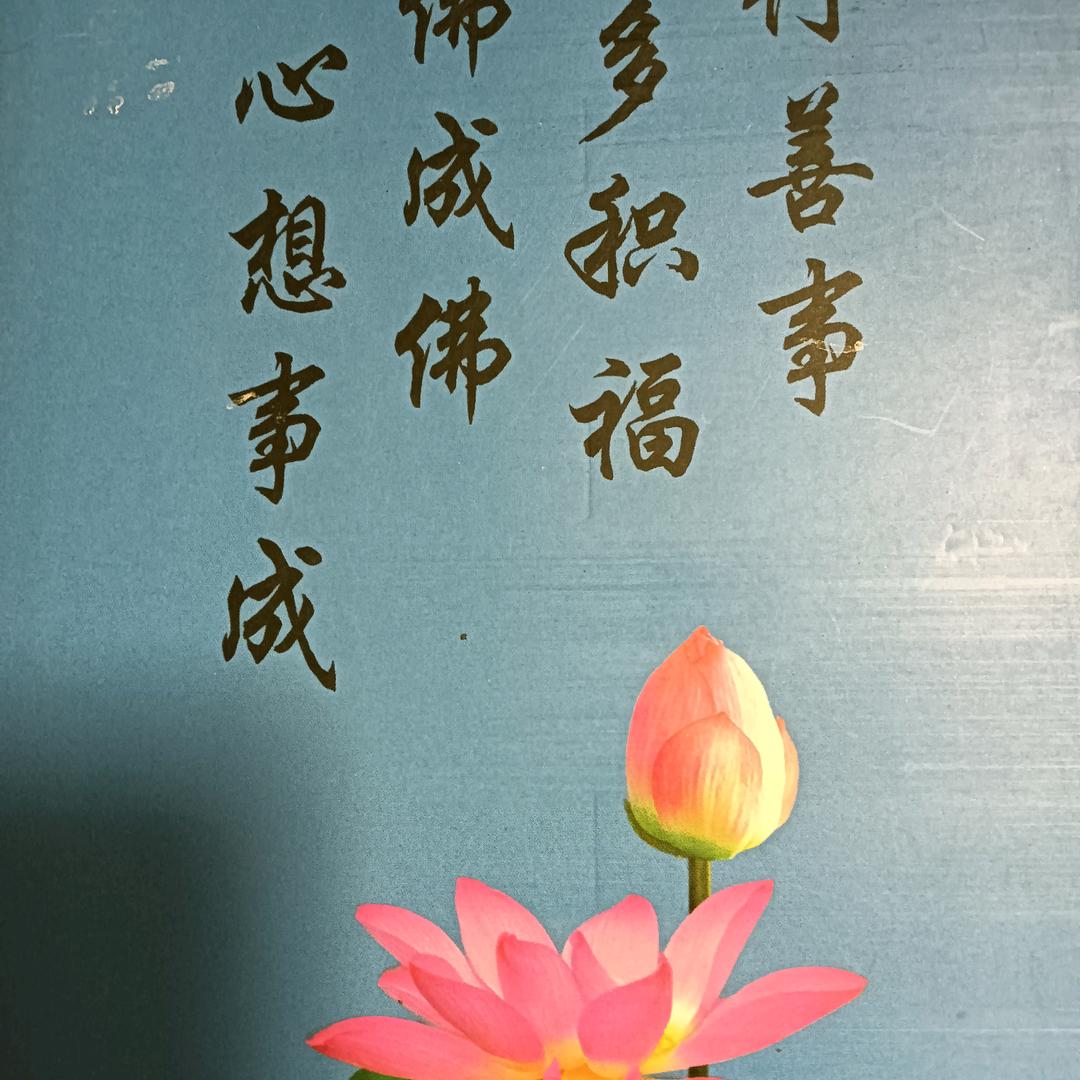 行善事
多积福
佛成佛
心想事成